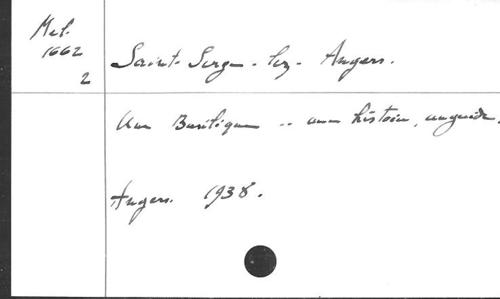 Mel.
1662
2
Saint-Serge-lez-Angers.
Une Basilique .. une histoire, un guide.
Angers. 1938.